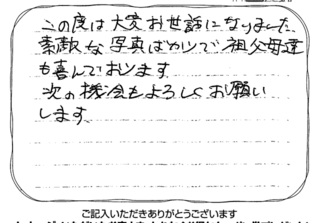 この度は大変お世話になりました。
素敵な写真ばかりで祖父母達
も喜んでおります
次の機会もよろしくお願い
します。
ご記入いただきありがとうございます